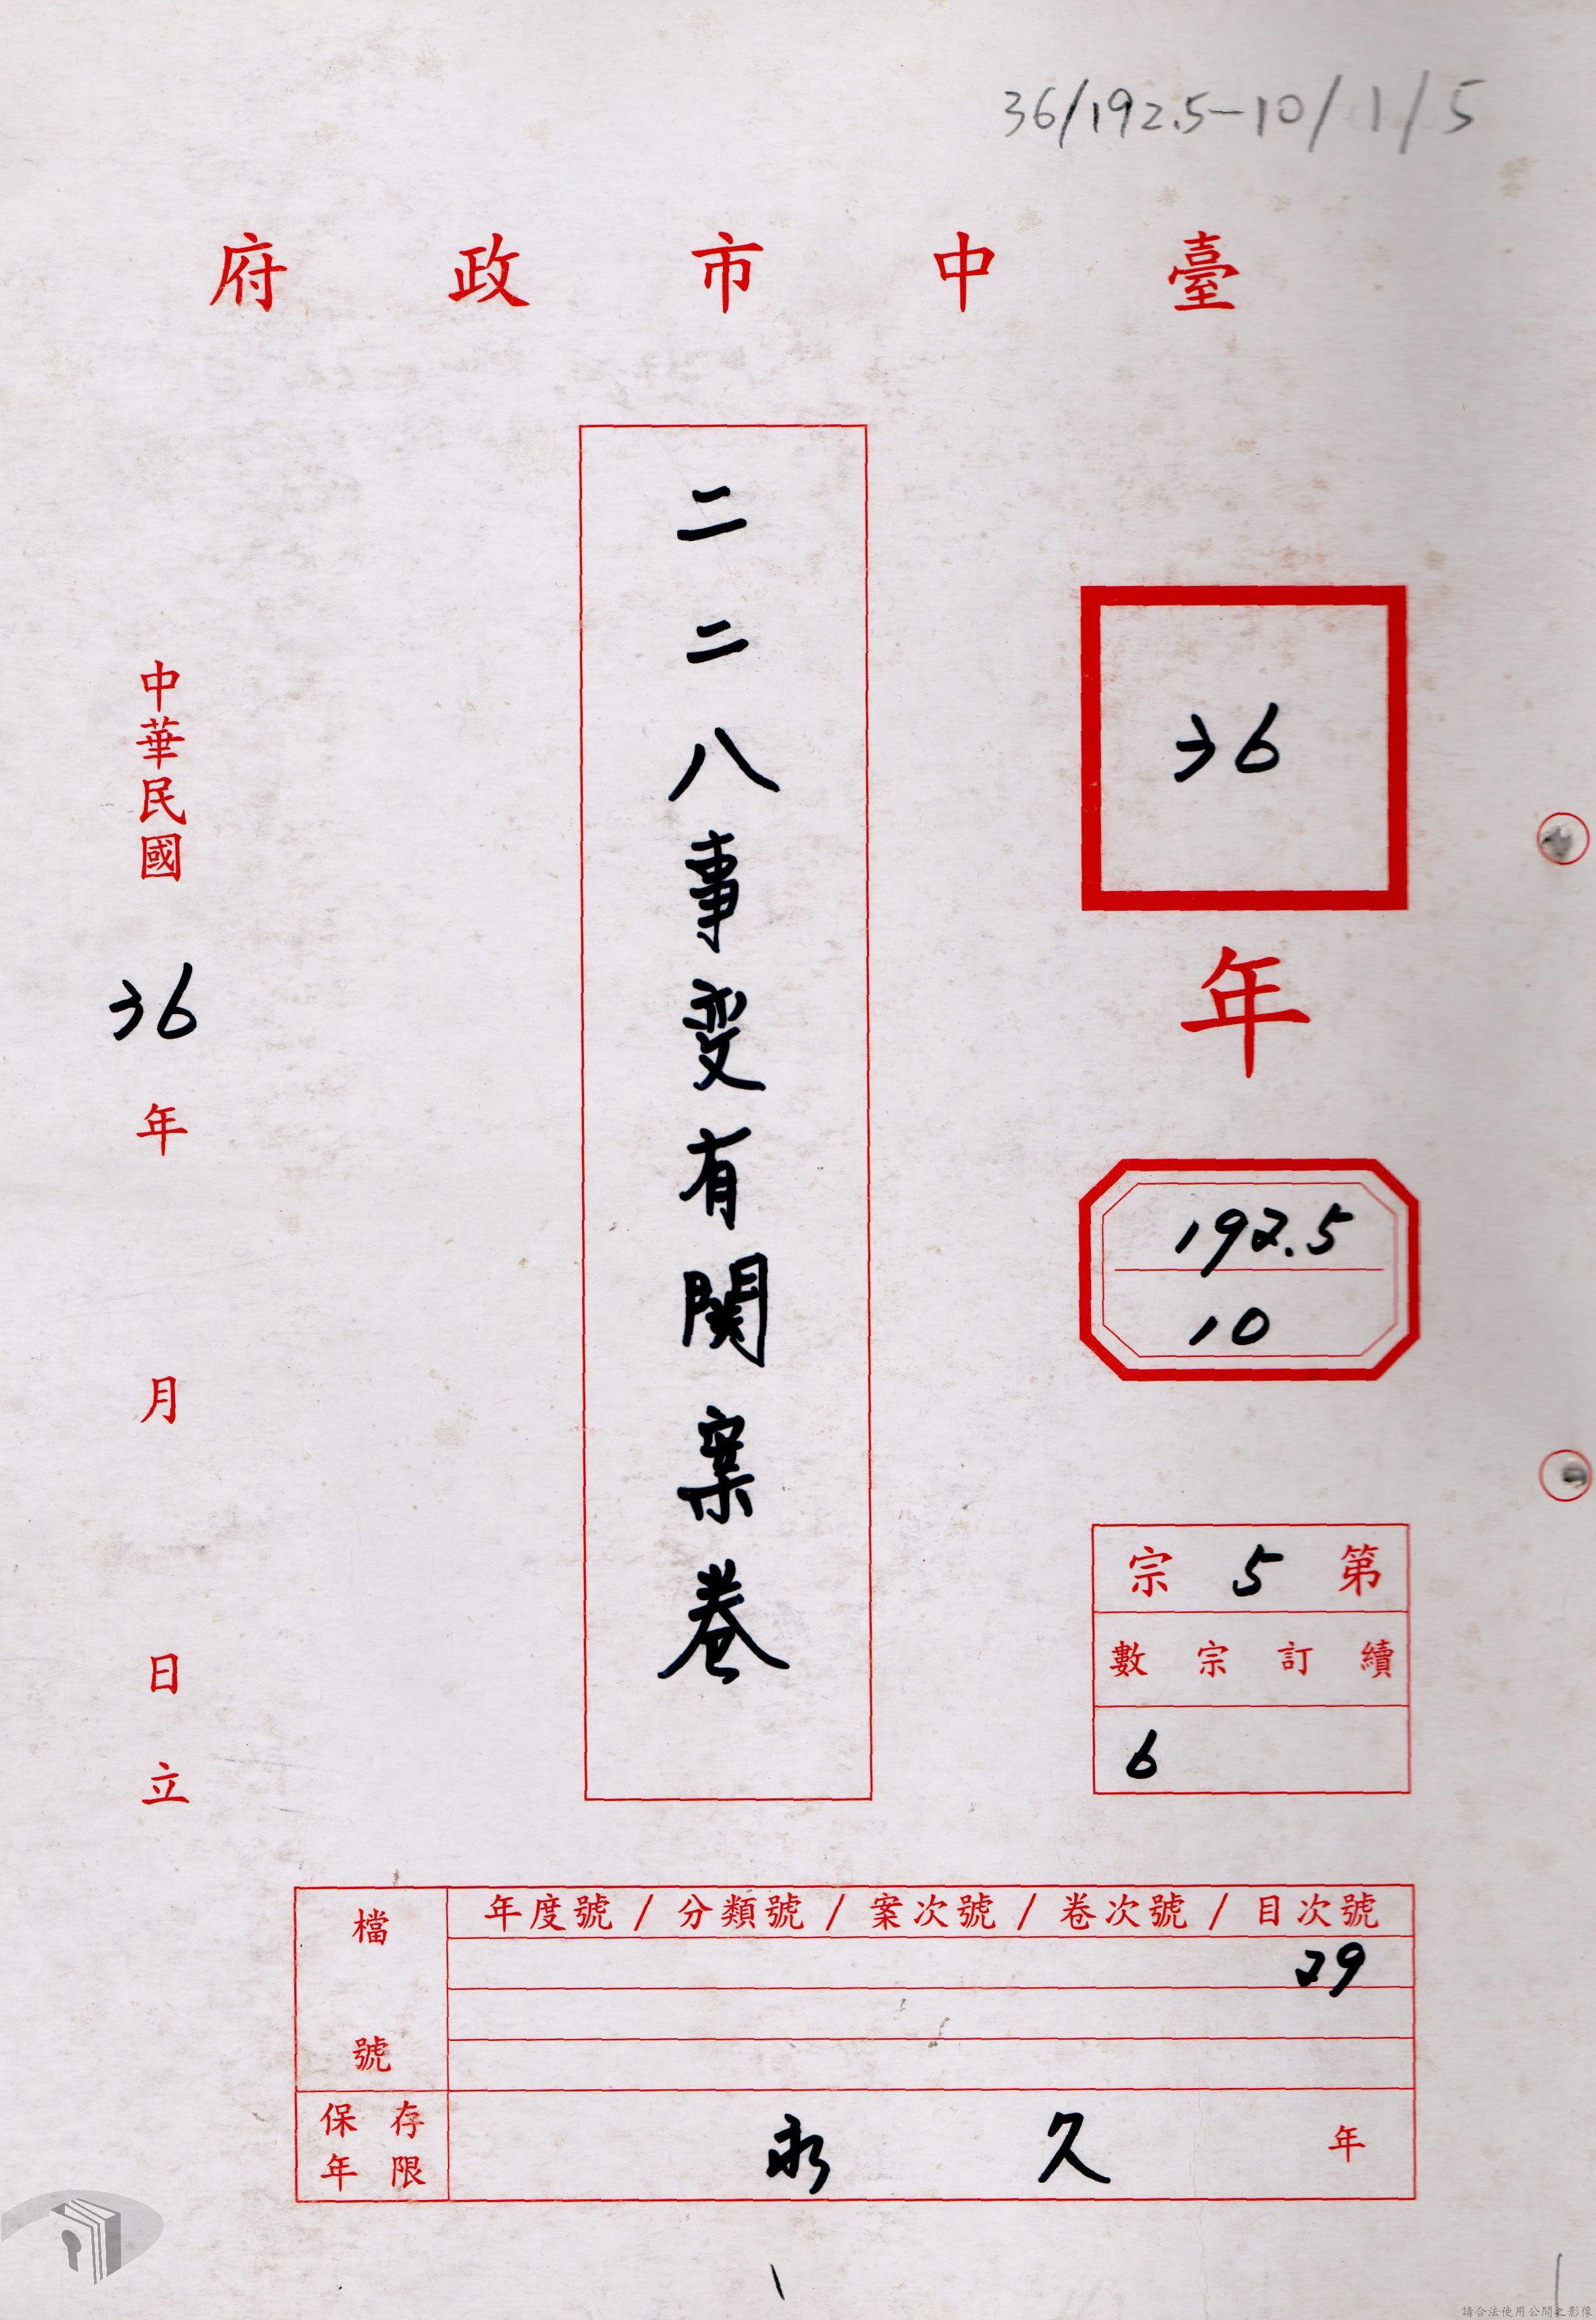 36/192.5-10/1/5
臺中市政府
36
年
192.5
10
第5宗
續訂宗數
6
二二八事变有関案卷
中華民國36年 月 日立
檔號
年度號/分類號/案次號/卷次號/目次號
29
保存年限
永久年
請合法使用公開之影像